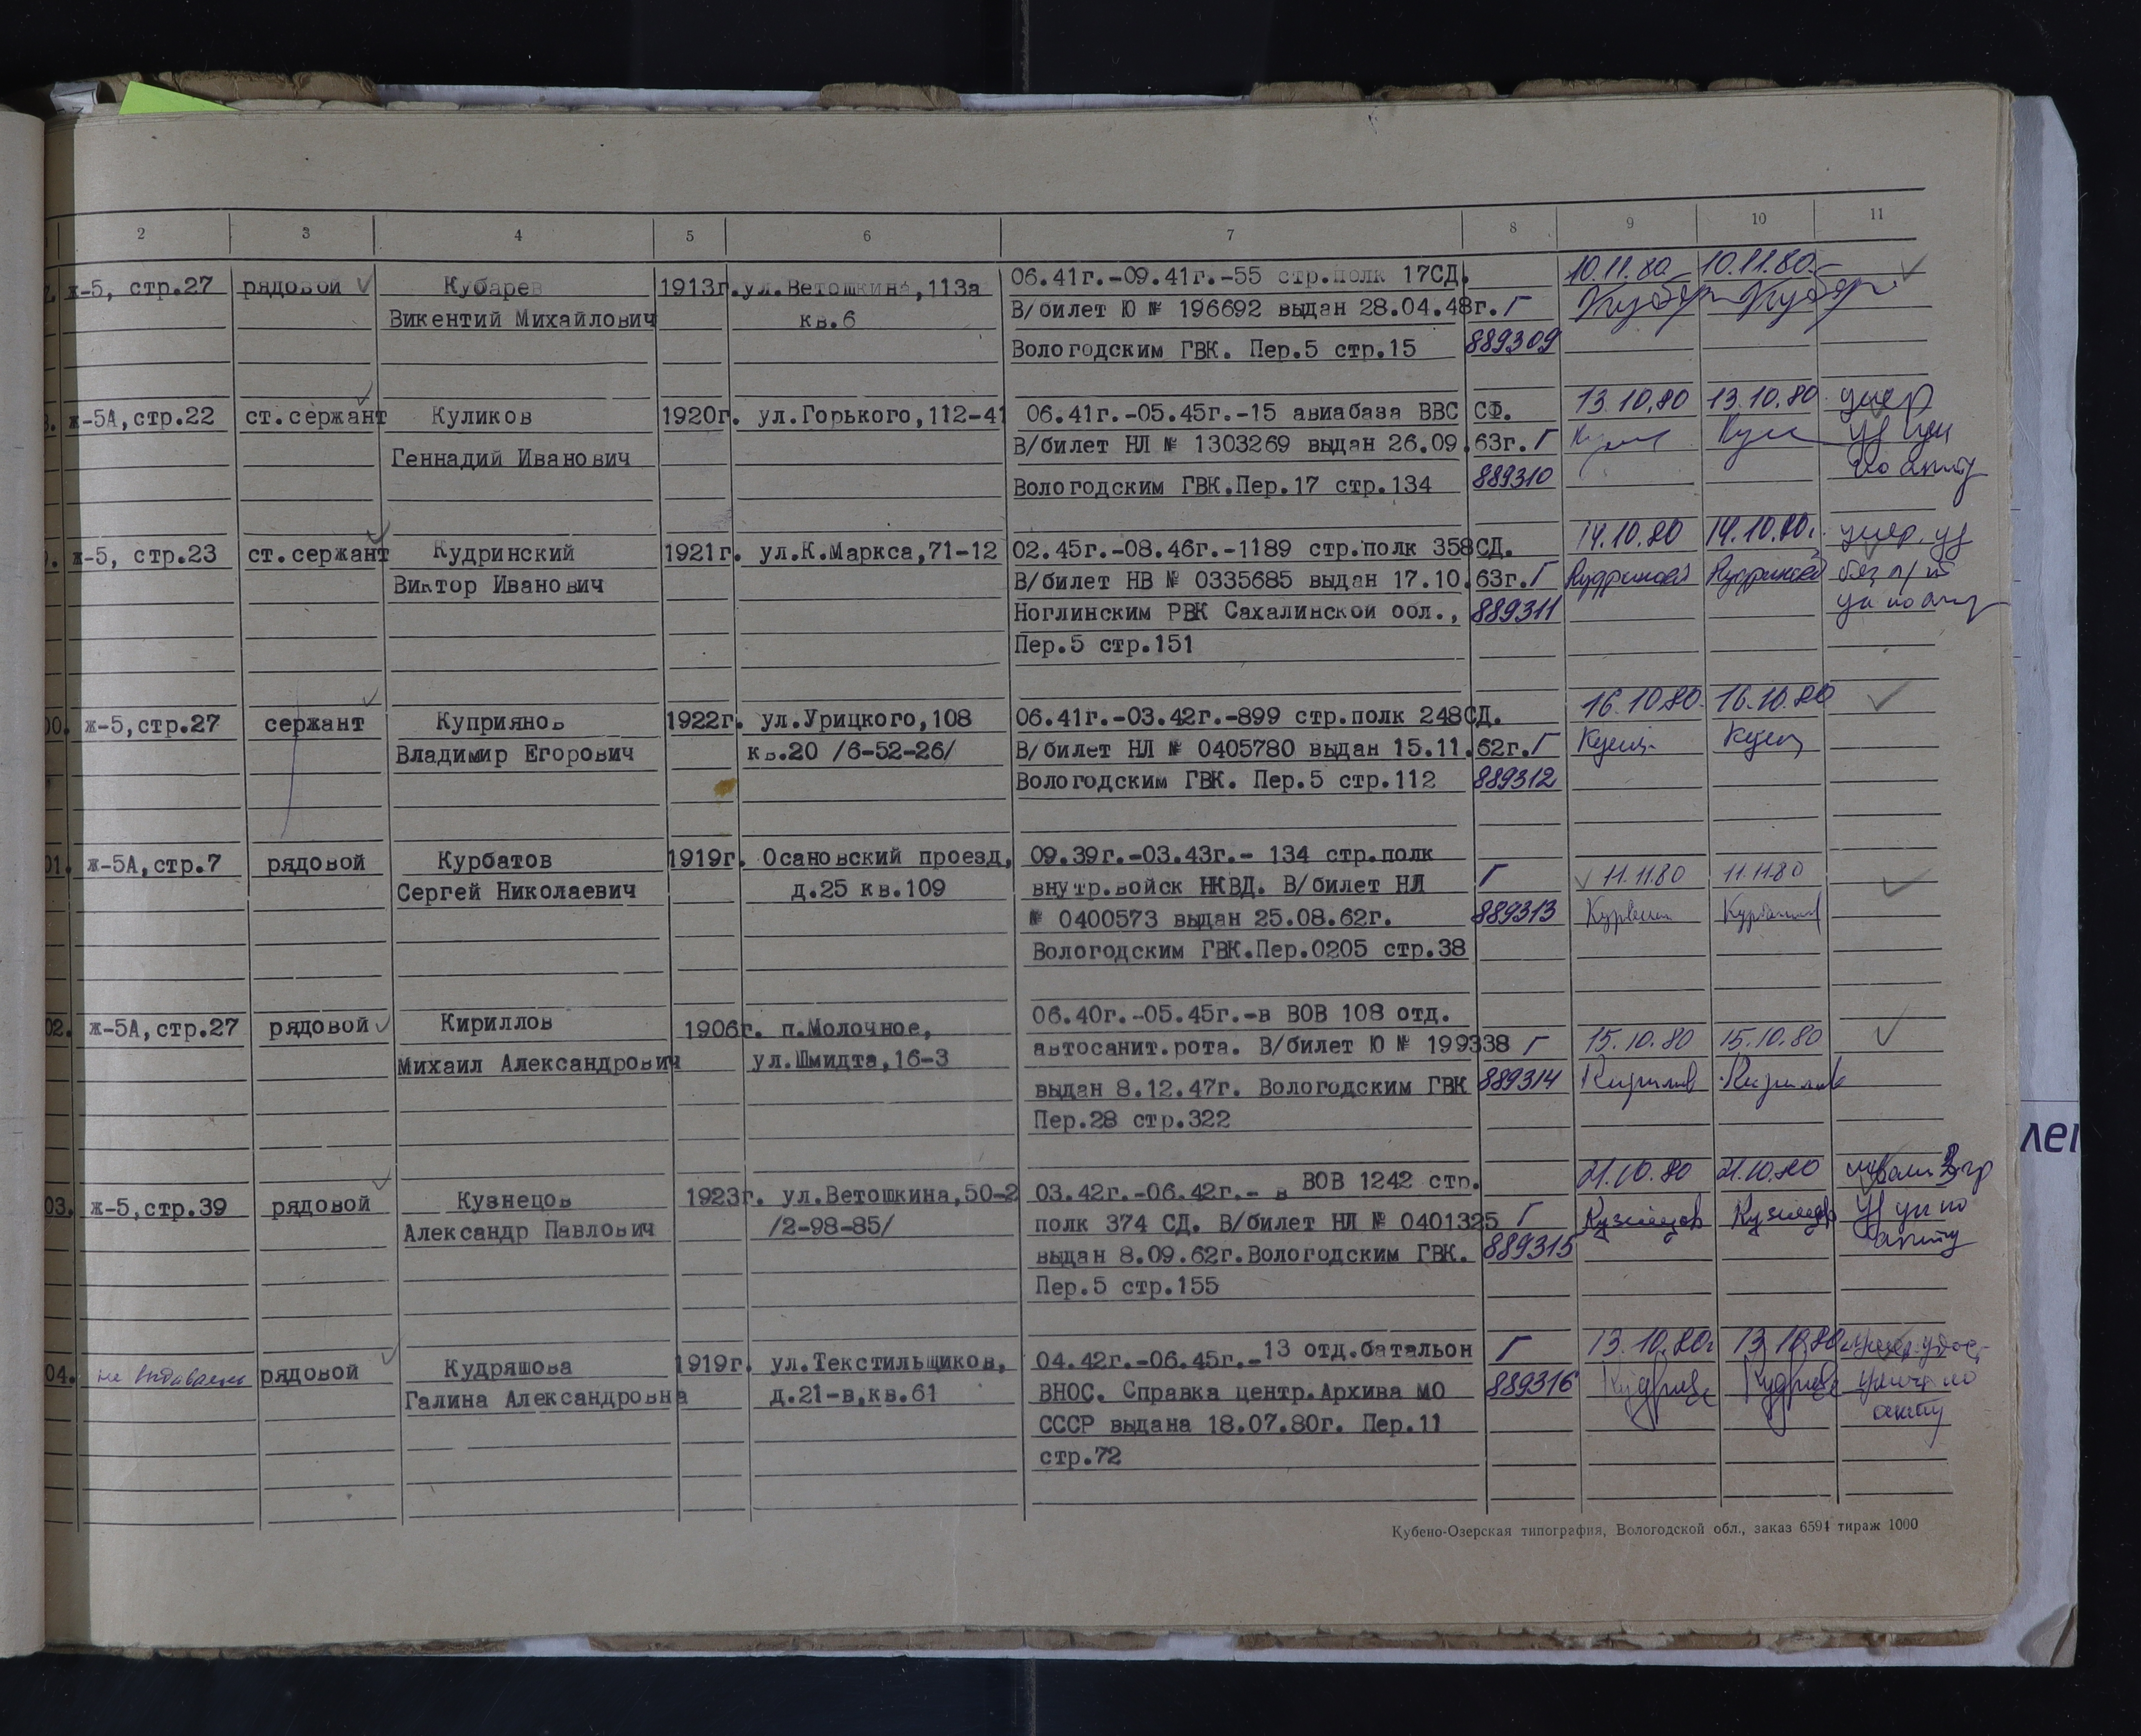 2 3 4 5 6 7 8 9 10 11
ж-5, стр.27 рядовой Кубарев 1913г. ул.Ветошкина,113а 06.41г.-09.41г.-55 стр.полк 17СД. 10.11.80 10.11.80
Викентий Михайлович кв.6 В/билет Ю № 196692 выдан 28.04.48г. Г
Вологодским ГВК. Пер.5 стр.15 889309
ж-5А,стр.22 ст.сержант Куликов 1920г. ул.Горького,112-41 06.41г.-05.45г.-15 авиабаза ВВС СФ. 13.10.80 13.10.80 умер
Геннадий Иванович В/билет НЛ № 1303269 выдан 26.09.63г. Г
Вологодским ГВК.Пер.17 стр.134 889310
ж-5, стр.23 ст.сержант Кудринский 1921г. ул.К.Маркса,71-12 02.45г.-08.46г.-1189 стр.полк 358СД. 14.10.80 14.10.80г. умер. уд
Виктор Иванович В/билет НВ № 0335685 выдан 17.10.63г. Г Кудринский Кудринский
Ноглинским РВК Сахалинской обл., 889311
Пер.5 стр.151
00. ж-5,стр.27 сержант Куприянов 1922г. ул.Урицкого,108 06.41г.-03.42г.-899 стр.полк 248СД. 16.10.80. 16.10.80
Владимир Егорович кв.20 /6-52-26/ В/билет НЛ № 0405780 выдан 15.11.62г. Г
Вологодским ГВК. Пер.5 стр.112 889312
01. ж-5А,стр.7 рядовой Курбатов 1919г. Осановский проезд, 09.39г.-03.43г.- 134 стр.полк
Сергей Николаевич д.25 кв.109 внутр.войск НКВД. В/билет НЛ Г 11.11.80 11.11.80
№ 0400573 выдан 25.08.62г. 889313
Вологодским ГВК.Пер.0205 стр.38
02. ж-5А,стр.27 рядовой Кириллов 1906г. п.Молочное, 06.40г.-05.45г.-в ВОВ 108 отд.
Михаил Александрович ул.Шмидта,16-3 автосанит.рота. В/билет Ю № 199338 Г 15.10.80 15.10.80
выдан 8.12.47г. Вологодским ГВК 889314
Пер.28 стр.322
03. ж-5,стр.39 рядовой Кузнецов 1923г. ул.Ветошкина,50-2 03.42г.-06.42г.- в ВОВ 1242 стр. 21.10.80 21.10.80
Александр Павлович /2-98-85/ полк 374 СД. В/билет НЛ № 0401325 Г Кузнецов Кузнецов
выдан 8.09.62г.Вологодским ГВК. 889315
Пер.5 стр.155
04. не выдавалось рядовой Кудряшова 1919г. ул.Текстильщиков, 04.42г.-06.45г.-13 отд.батальон Г 13.10.80г 13.10.80
Галина Александровна д.21-в,кв.61 ВНОС. Справка центр.Архива МО 889316
СССР выдана 18.07.80г. Пер.11 акту
стр.72
Кубено-Озерская типография, Вологодской обл., заказ 6594 тираж 1000